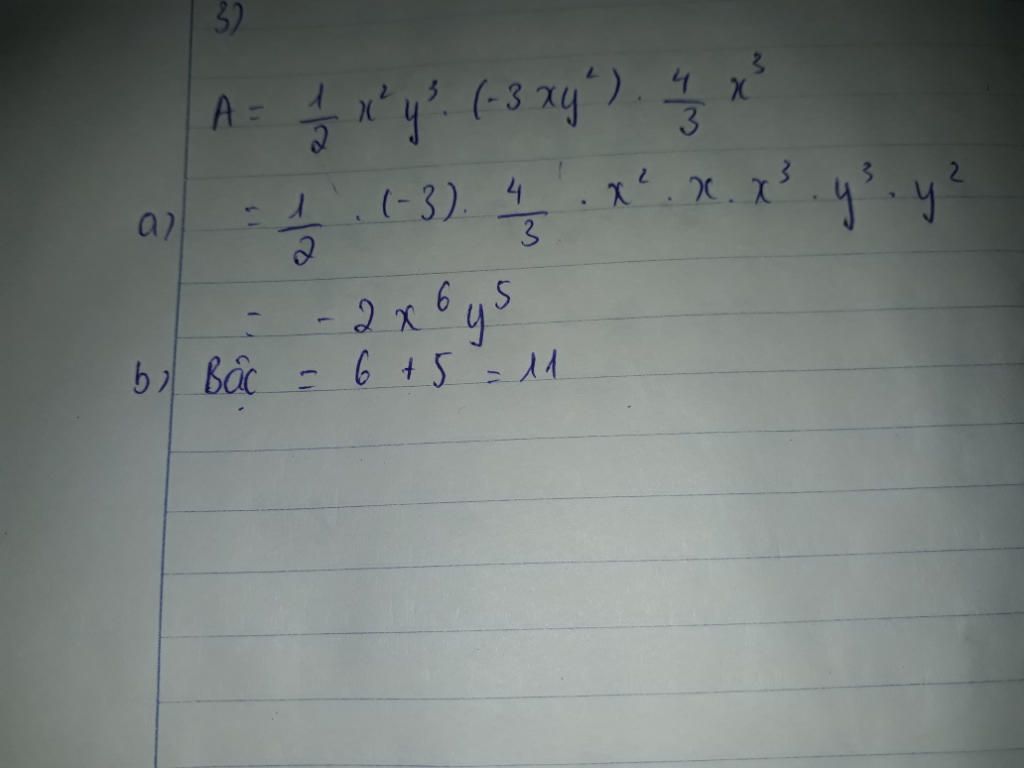 3)
A = 1/2 x² y³ . (-3 xy²) . 4/3 x³
a) = 1/2 . (-3) . 4/3 . x² . x . x³ . y³ . y²
= - 2 x⁶ y⁵
b) Bậc = 6 + 5 = 11